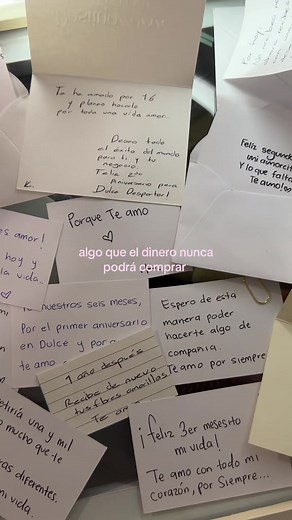 Te he amado por 16
y planeo hacerlo
por toda una vida amor.
Deseo todo
el éxito del mundo
para ti y tu
negocio.
Feliz 2do
Aniversario para
Dulce Despertar!
K.
Feliz segundo
mi amorcit
Y lo que falta
Te amo!
es amor!
hoy y
la vida.
Porque Te amo
algo que el dinero nunca
podrá comprar
nuestros seis meses,
Por el primer aniversario
en Dulce y por
te amo
Espero de esta
manera poder
hacerte algo de
compañia.
Te amo por siempre
1 año después
Recibo de nuevo
tus flores amarillas
Te am
etiría una y mil
mucho que te
as diferentes.
mi vida.
¡Feliz 3er mesesito
mi vida!
Te amo con todo mi
corazón, por Siempre...